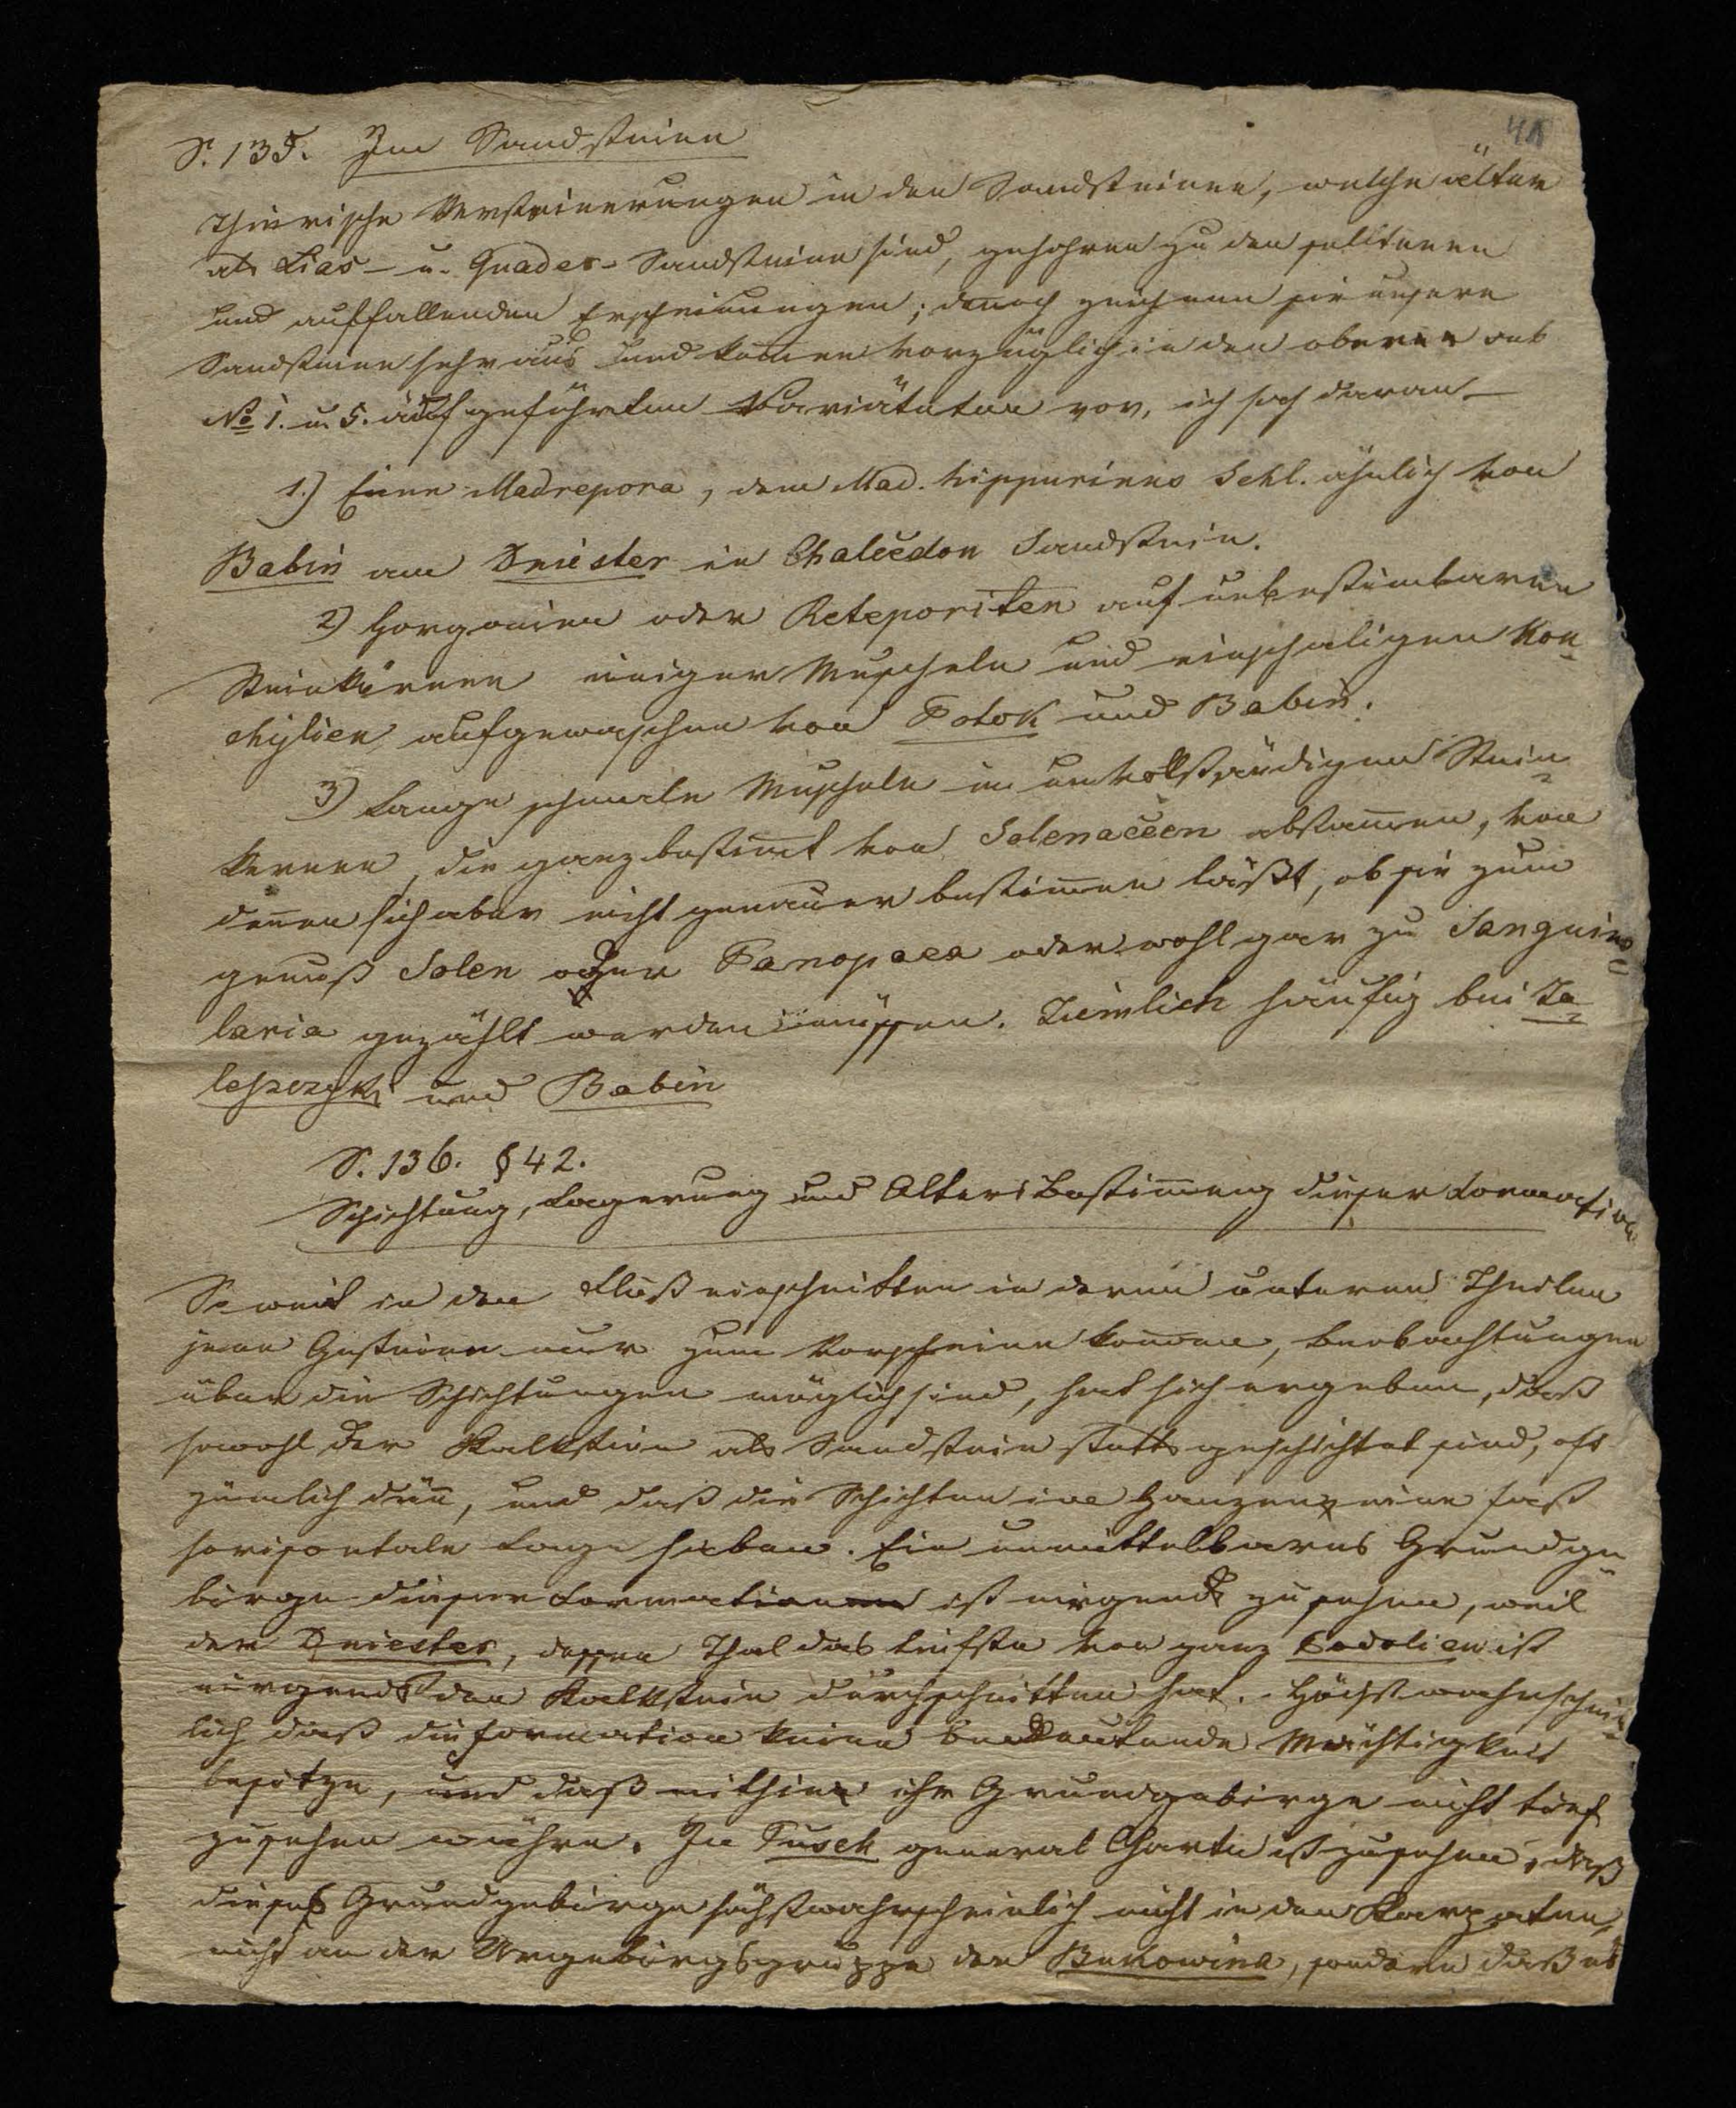 41
S. 135. Im Sandsteine
Thierische Versteinerungen in den Sandsteinen, welche älter
als Lias- u. Quader-Sandsteine sind, gehören zu den seltenen
und auffallenden Erscheinungen; denoch zeichnen sie unsere
Sandsteine sehr aus und komen vorzüglich in den oberen sub
No 1. u. 5. aufgeführten Variäteten vor, ich sah daran
1.) Eine Madrepora, dem Mad. hippurinus Schl. ähnlich von
Babin am Dniester in Chalcedon Sandstein.
2) Gorgonien oder Reteporiten auf unbestimbaren
Steinkernen einiger Muscheln und einschaligen Kon-
chylien, aufgewachsen von Potok und Babin.
3) Lange schmale Muscheln in unvollständigen Stein-
kernen, die ganz bestimt von Solenaceen abstamen, von
denen sich aber nicht genauer bestimen läßt, ob sie zum
genuß Solen oder Panopaea oder wohl gar zu Sanguino-
laria gezählt werden müssen. Ziemlich häufig bei Za-
leszczyki und Babin
S. 136. § 42.
Schichtung, Lagerung und Altersbestimung dieser Formation
So weit in den Flußeinschnitten in deren unteren Theilen
jene Gesteine nur zum Vorscheine komen, Beobachtungen
über die Schichtungen möglich sind, hat sich ergeben, daß
sowohl der Kalkstein als Sandstein stetts geschichtet sind, oft
ziemlich dün, und daß die Schichten im Ganzen eine fast
horizontale Lage haben. Ein unmittelbares Grundge-
birge dieser Formation ist nirgends zu sehen, weil
der Dniester, dessen Thal das tiefste von ganz Podolien ist
nirgends den Kalkstein durchschnitten hat. Höchst wahrschein-
lich daß die Formation keine bedeutende Mächtigkeit
besitze, und daß mithin ihr Grundgebirge nicht tief
zu sehen währe. In Pusch general Charte ist zu sehen, daß
dieses Grundgebirge höchstwahrscheinlich nicht in den Karpaten,
nicht an der Urgebirgsgruppe der Bukowina, sondern daß es